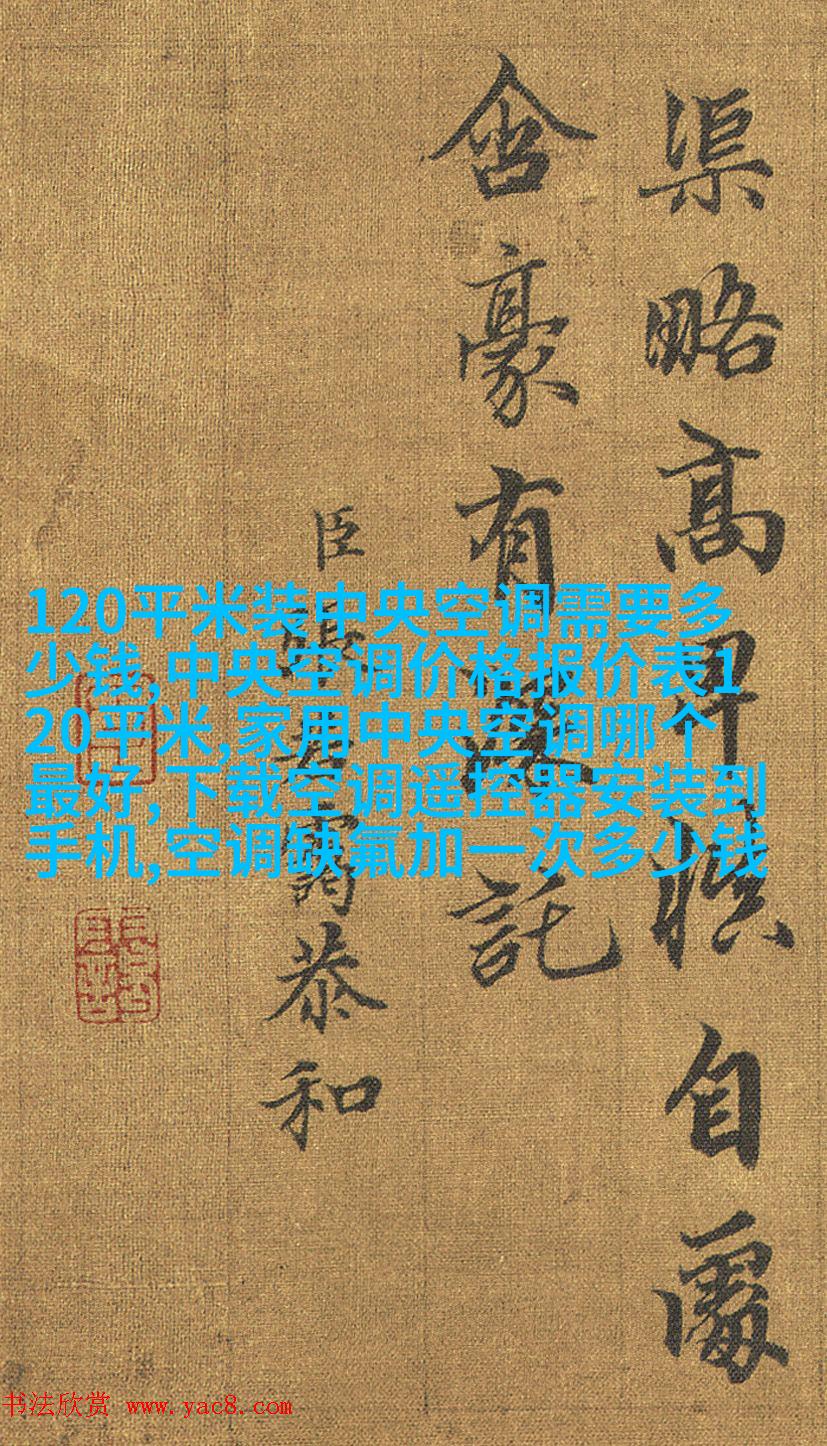 渠略高卑慎自處
含豪有託
臣張若靄恭和
120平米装中央空调需要多
少钱,中央空调价格报价表1
20平米,家用中央空调哪个
最好,下载空调遥控器安装到
手机,空调缺氟加一次多少钱
书法欣赏 www.yac8.com